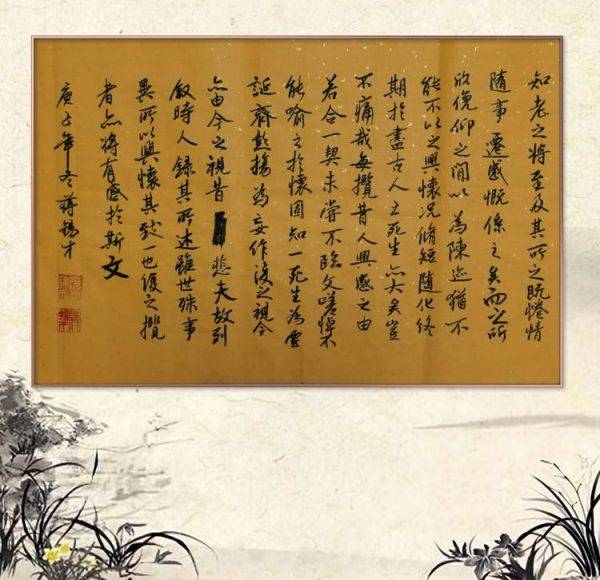 知老之将至及其所之既惓情
随事遷感慨係之矣向之所
欣俛仰之间以為陳迹猶不
能不以之興懷況脩短随化終
期於盡古人云死生亦大矣豈
不痛哉每攬昔人興感之由
若合一契未嘗不臨文嗟悼不
能喻之於懷固知一死生為虚
誕齊彭殤為妄作後之視今
亦由今之視昔悲夫故列
叙時人録其所述雖世殊事
異所以興懷其致一也後之攬
者亦将有感於斯文
庚子年冬蒋锡才